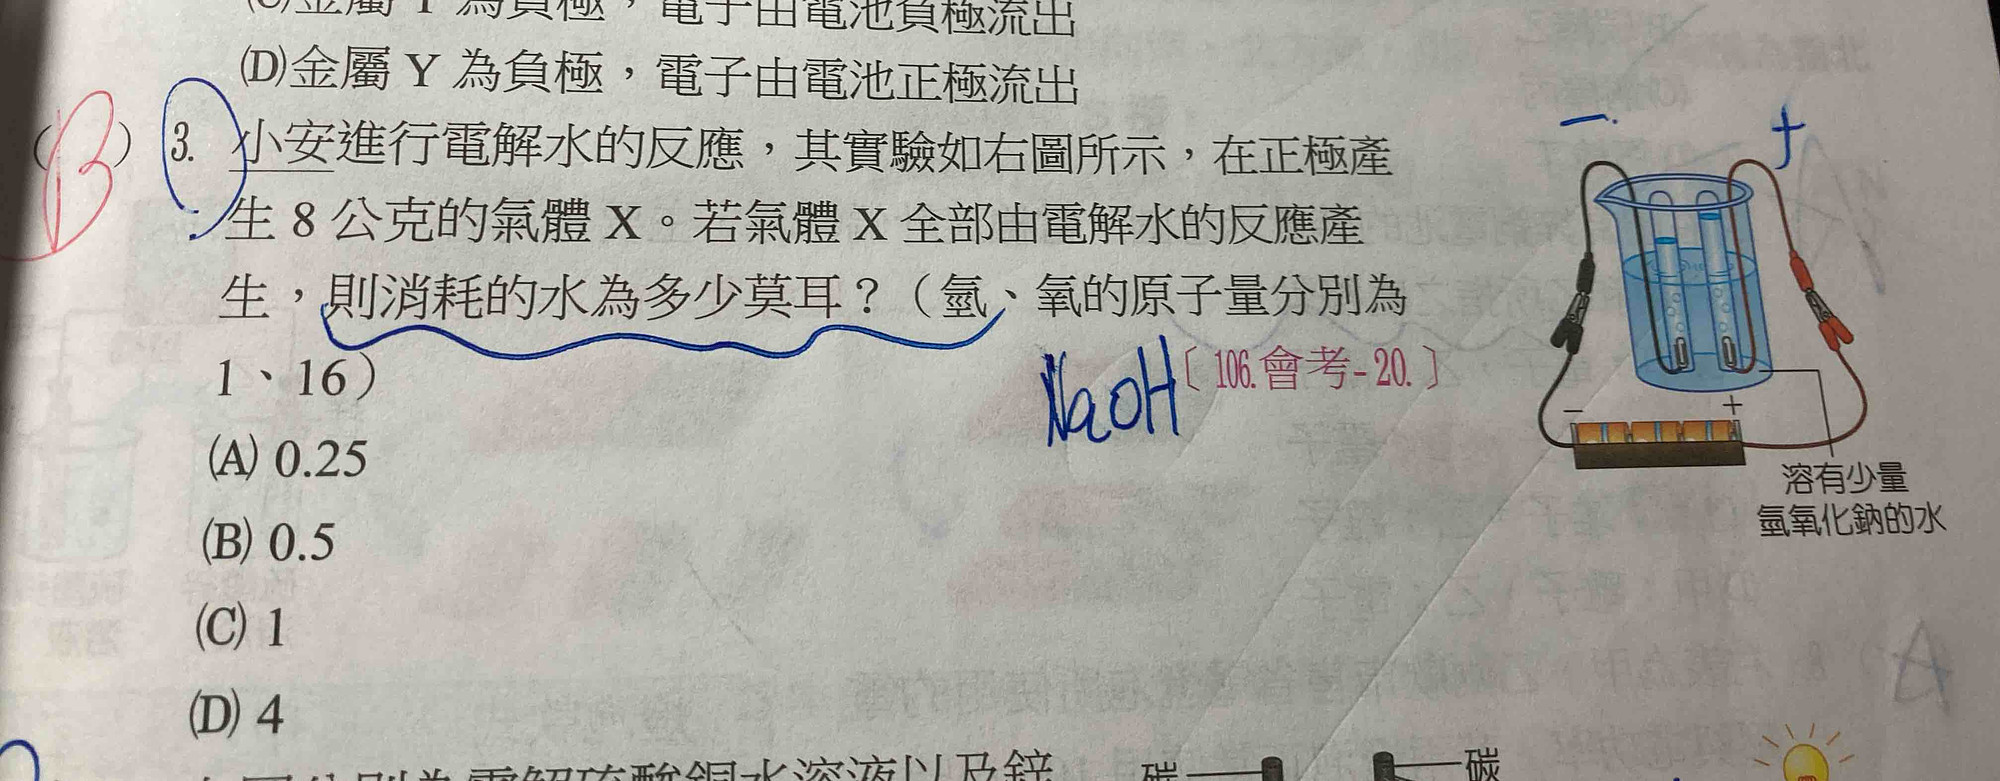 (C)金屬 Y 為負極，電子由電池負極流出
(D)金屬 Y 為負極，電子由電池正極流出
(B) 3. 小安進行電解水的反應，其實驗如右圖所示，在正極產
生 8 公克的氣體 X。若氣體 X 全部由電解水的反應產
生，則消耗的水為多少莫耳？（氫、氧的原子量分別為
1、16）
〔106.會考-20.〕
NaOH
(A) 0.25
(B) 0.5
(C) 1
(D) 4
− +
− +
溶有少量
氫氧化鈉的水
碳
碳